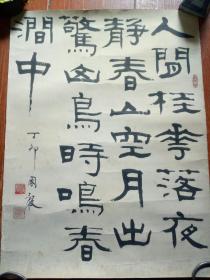 人閒桂花落夜
静春山空月出
驚山鳥時鳴春
澗中
丁卯